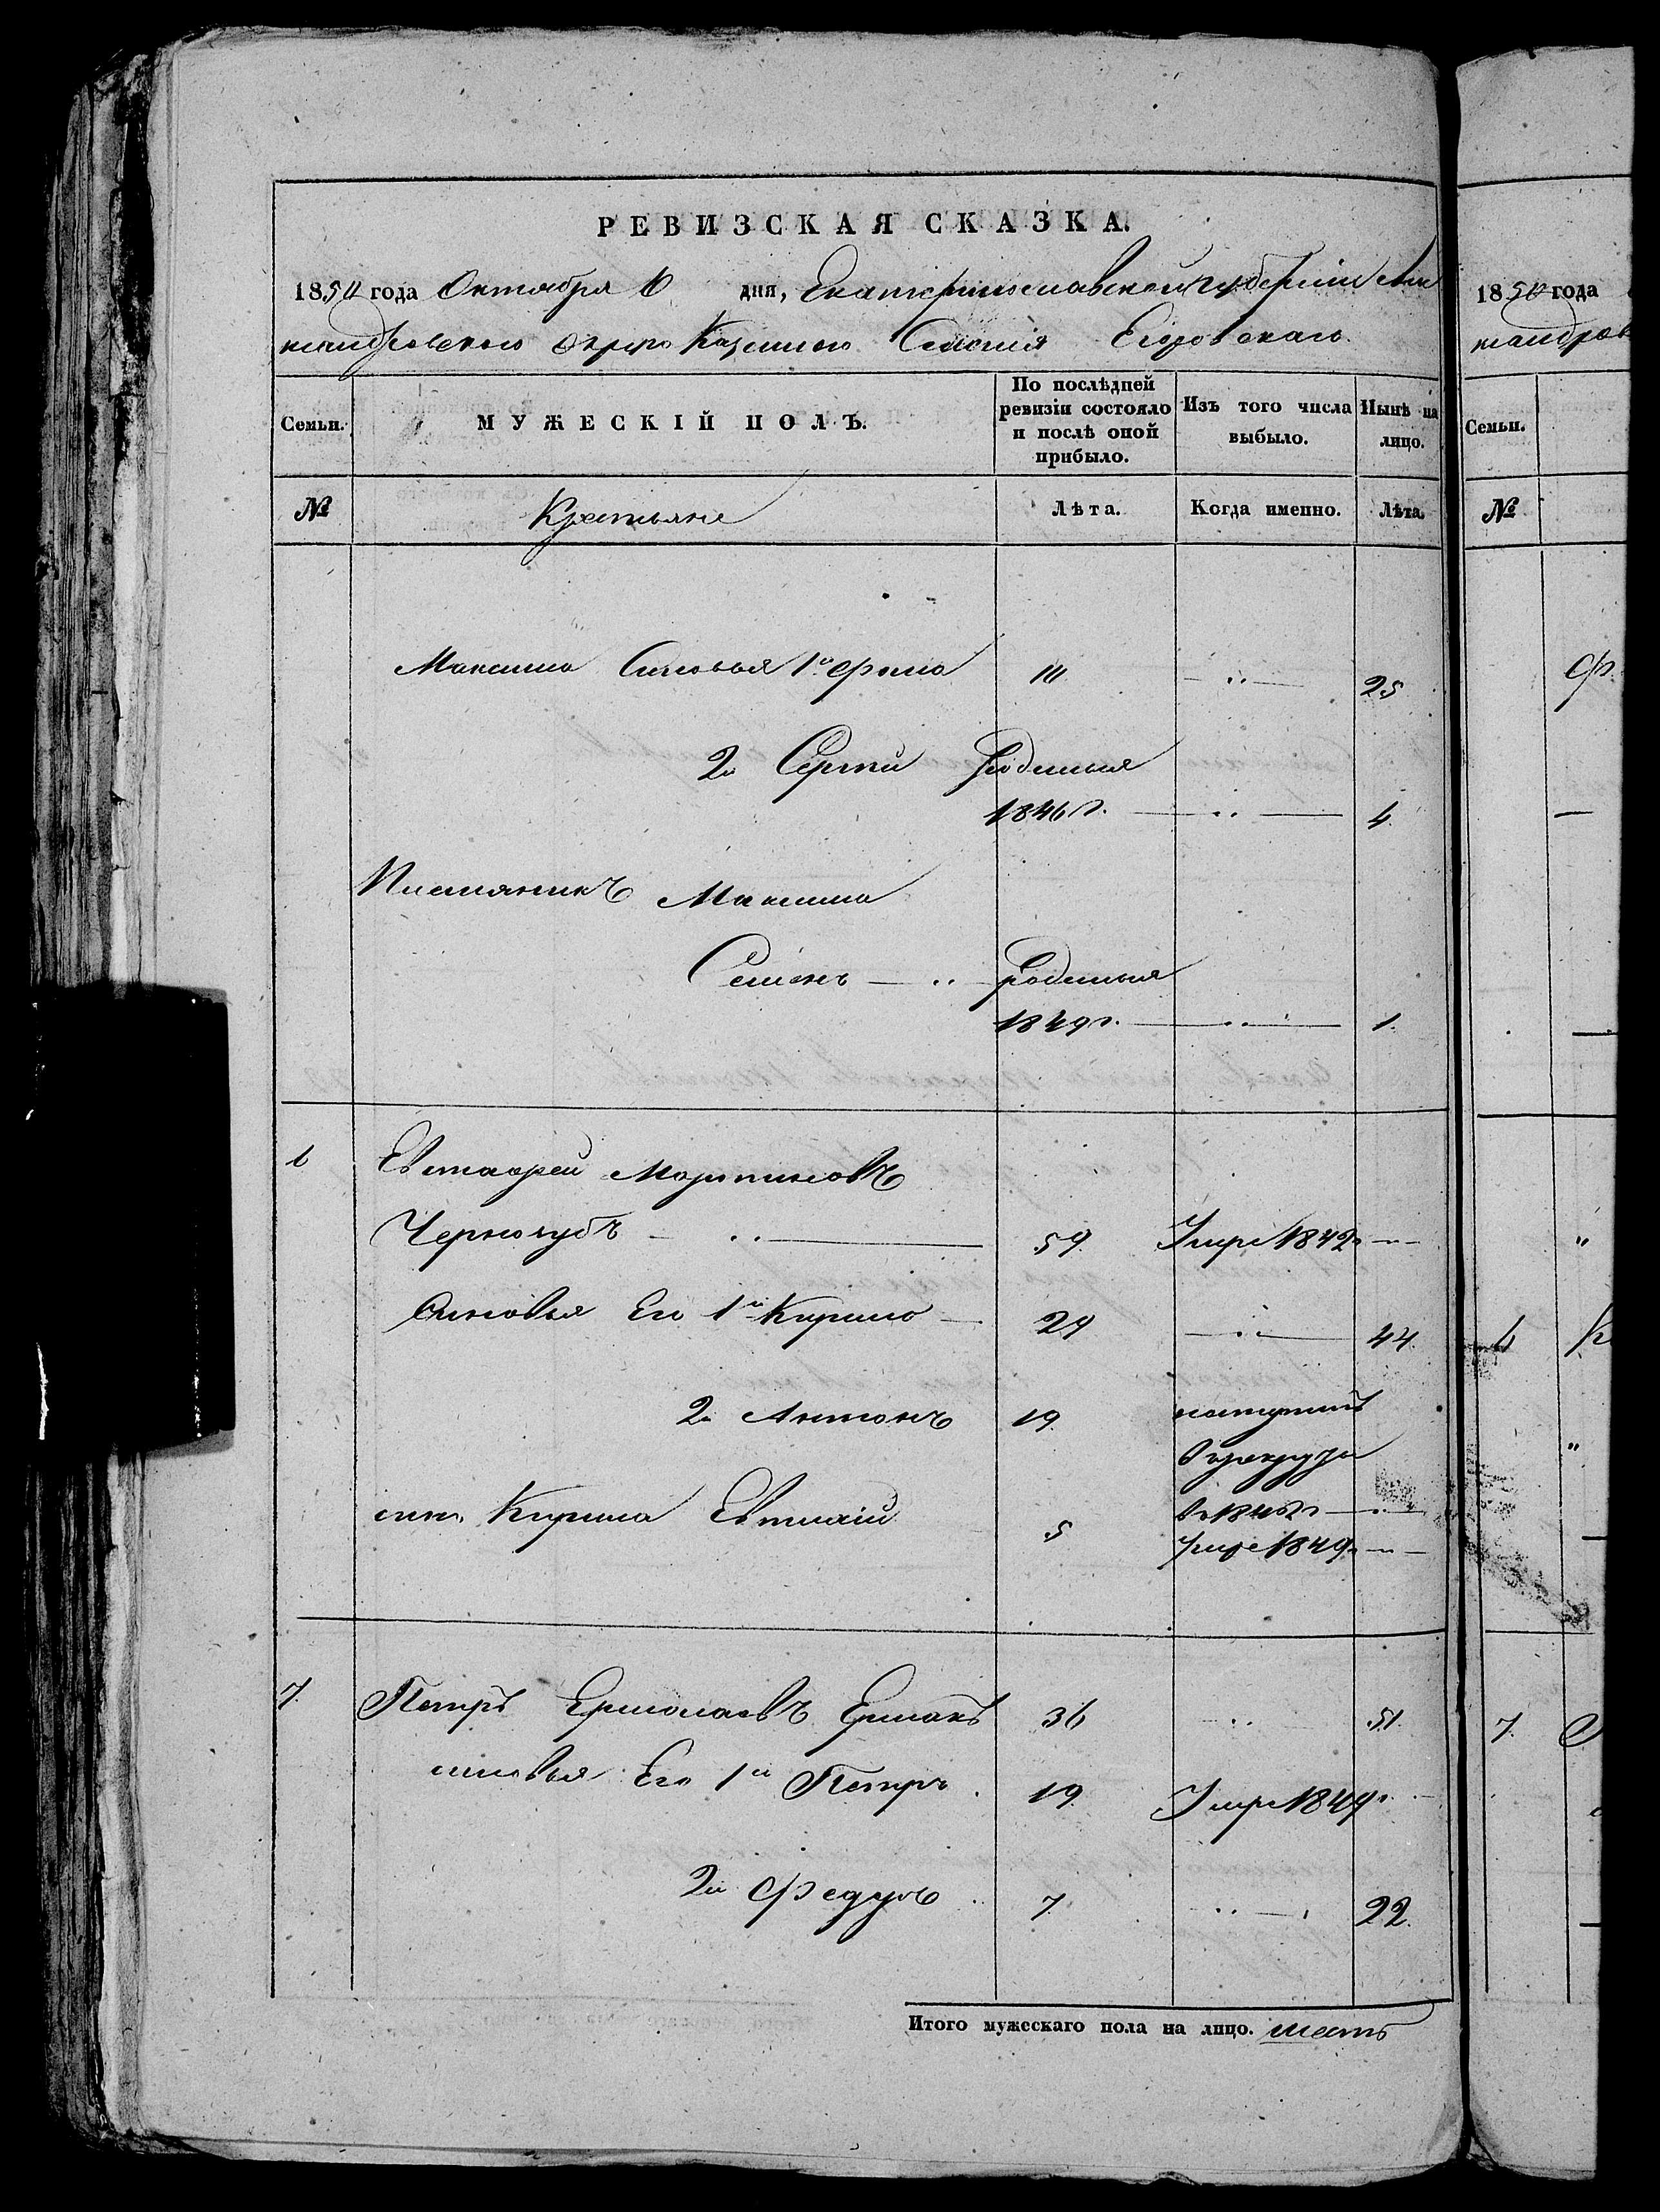 РЕВИЗСКАЯ СКАЗКА.
1850 года Октября 6 дня, Екатеринославской губернии Алек
сандровского округа Казенного Селения
Семьи. МУЖЕСКІЙ ПОЛЪ. По послѣдней ревизіи состояло и послѣ оной прибыло. Изъ того числа выбыло. Нынѣ на лицо.
№ Крестьяне Лѣта. Когда именно. Лѣта.
Максима Сыновья 1й 10 25
2й Сергей рожденный
1846 г. 4.
Племяникъ Максима
Семенъ рожденный
1849 г. 1.
6 Евстафей Мартиновъ
Чорногубъ 59. Умре 1842
Сыновья Его 1й Кирило 29 44.
2й Антонъ 19. поступилъ
в рекруты
сын. Кирила 5 в 184
Умре 1849
7. Петръ Ермолаевъ Ермакъ 36 51.
сыновья Его 1й Петръ 19. Умре 1849
2й Федоръ 7. 22.
Итого мужескаго пола на лицо. шесть
1850 года
сандров
Семьи.
№
Ф
6 К
7.